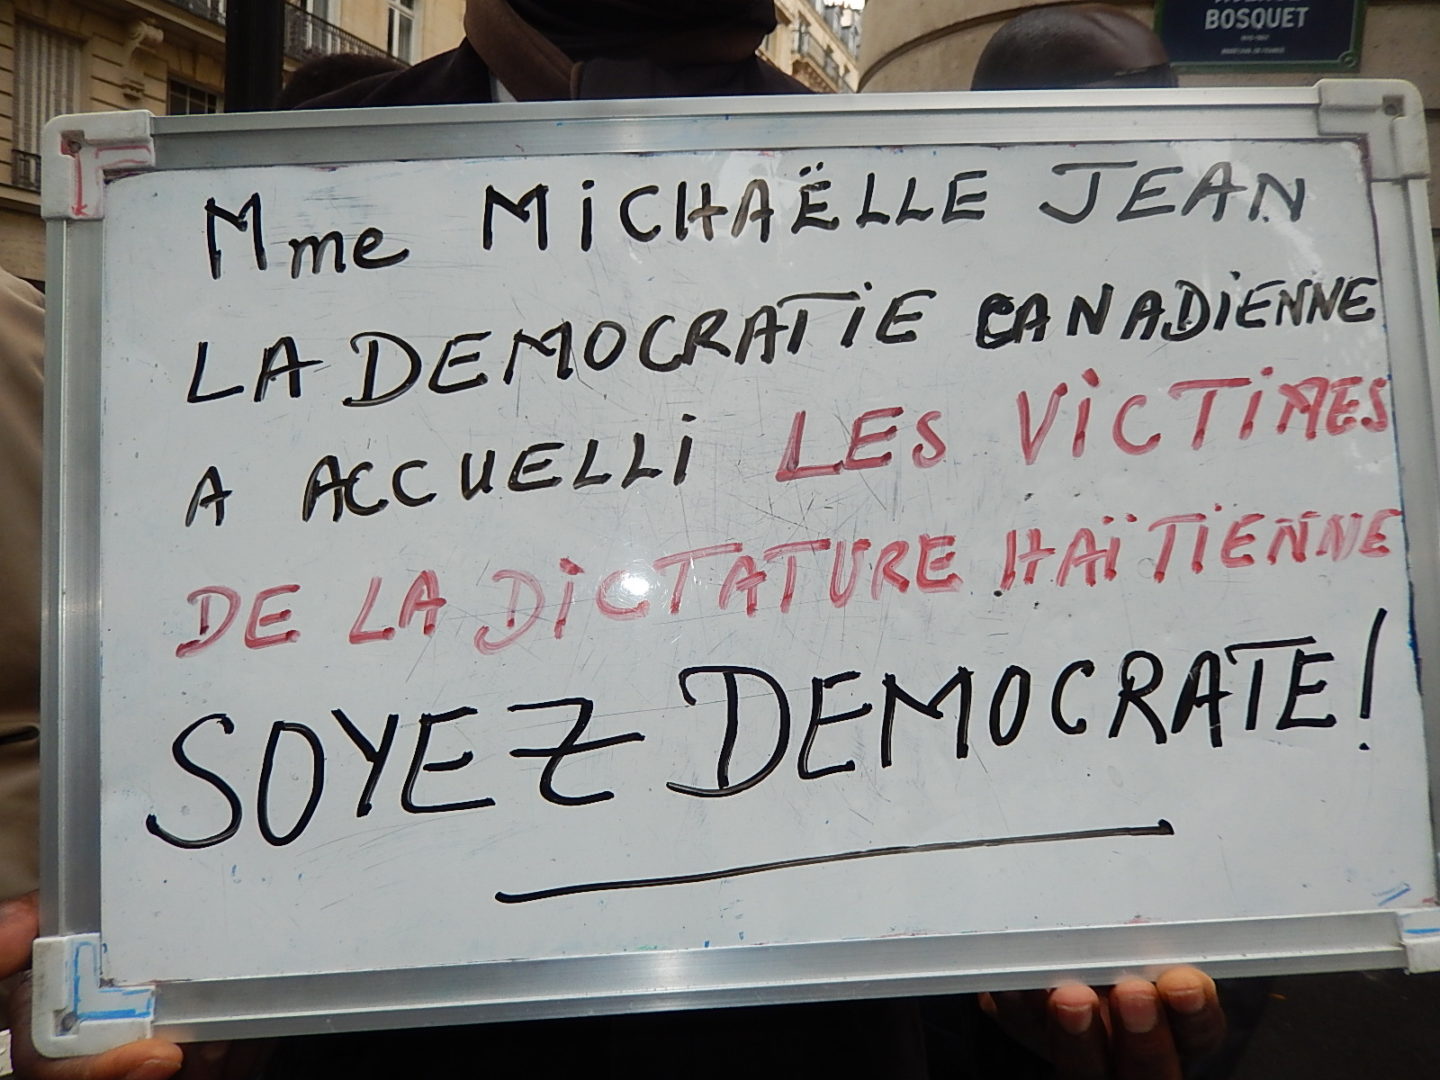 BOSQUET
Mme MiCHAËLLE JEAN
LA DEMOCRATiE CANADiENNE
A ACCUELLi LES ViCTiMES
DE LA DiCTATURE HAÏTiENNE
SOYEZ DEMOCRATE!